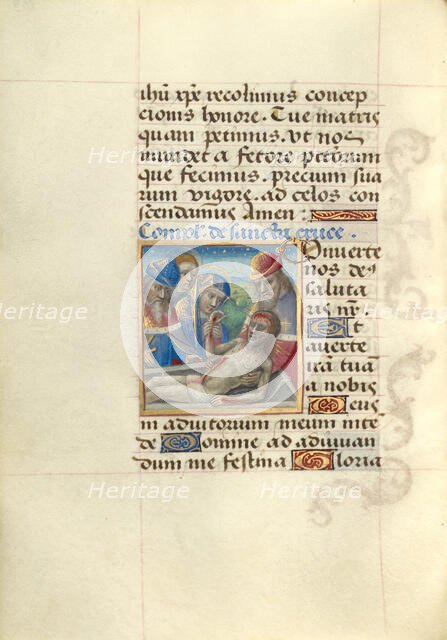 ihũ xp̃e recolimus concep
cionis honore. Tue matris
quam petimus. vt nos
mundet a fetore pctõrum
que fecimus. precium sua
rum vigore. ad celos con
scendamus Amen:
Compl̃. de sancta cruce.
Conuerte
nos de9
saluta
ris nr̃
Et
auerte
irã tuã
a nobis
Deus
in adiutorium meum inte
de Domine ad adiuuan
dum me festina Gloria
Heritage
Heritage
Heritage
Heritage
Heritage
Heritage